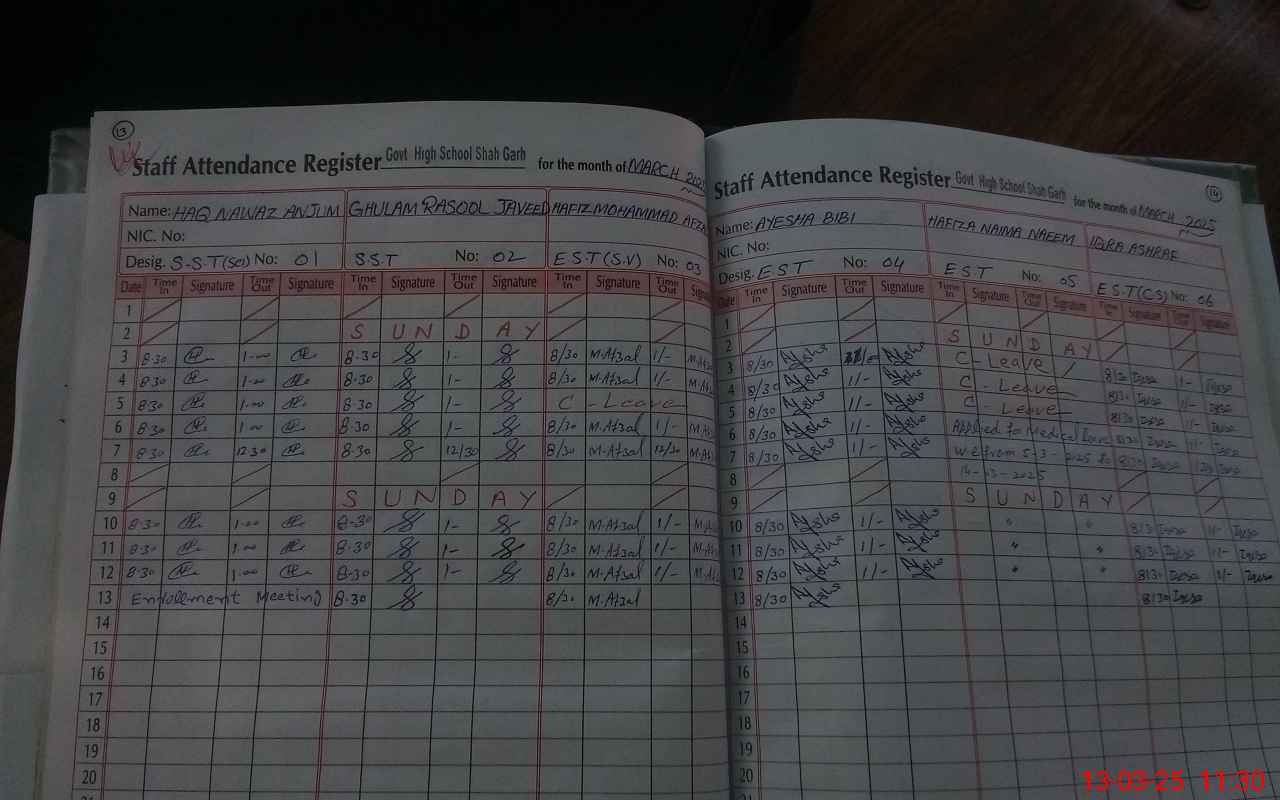 13
Staff Attendance Register Govt High School Shah Garh for the month of MARCH 2025
Name: HAQ NAWAZ ANJUM GHULAM RASOOL JAVEED HAFIZ MOHAMMAD
NIC. No:
Desig. S.S.T(Sci) No: 01 S.S.T No: 02 E S T (S.V) No: 03
Date Time In Signature Time Out Signature Time In Signature Time Out Signature Time In Signature Time Out
1
2 S U N D A Y
3 8-30 1-00 8-30 1- 8/30 M.Afzal 1/-
4 8-30 1-00 8-30 1- 8/30 M.Afzal 1/-
5 8-30 1-00 8-30 1- C - Leave
6 8-30 1-00 8-30 1- 8/30 M.Afzal 1/-
7 8-30 12-30 8-30 12/30 8/30 M.Afzal 12/30
8
9 S U N D A Y
10 8-30 1-00 8-30 1- 8/30 M.Afzal 1/-
11 8-30 1-00 8-30 1- 8/30 M.Afzal 1/-
12 8-30 1-00 8-30 1- 8/30 M.Afzal 1/-
13 Enrollment Meeting 8-30 8/30 M.Afzal
14
15
16
17
18
19
20
14
Staff Attendance Register Govt High School Shah Garh for the month of MARCH 2025
Name: AYESHA BIBI HAFIZA NAIMA NAEEM IQRA ASHRAF
NIC. No:
Desig. E S T No: 04 E S T No: 05 E S T (CS) No: 06
Date Time In Signature Time Out Signature Time In Signature Time Out Signature Time In Signature Time Out Signature
1
2 S U N D A Y
3 8/30 C - Leave 8/30 1/-
4 8/30 1/- C - Leave 8/30 1/-
5 8/30 1/- C - Leave 8/30 1/-
6 8/30 1/- Applied for Medical Leave 8/30 1/-
7 8/30 1/- w.e from 5-3-2025 to 8/30
8 14-03-2025
9 S U N D A Y
10 8/30 1/- " " 8/30 1/-
11 8/30 1/- " " 8/30 1/-
12 8/30 1/- " " 8/30 1/-
13 8/30 8/30
14
15
16
17
18
19
20
13-03-25 11:30